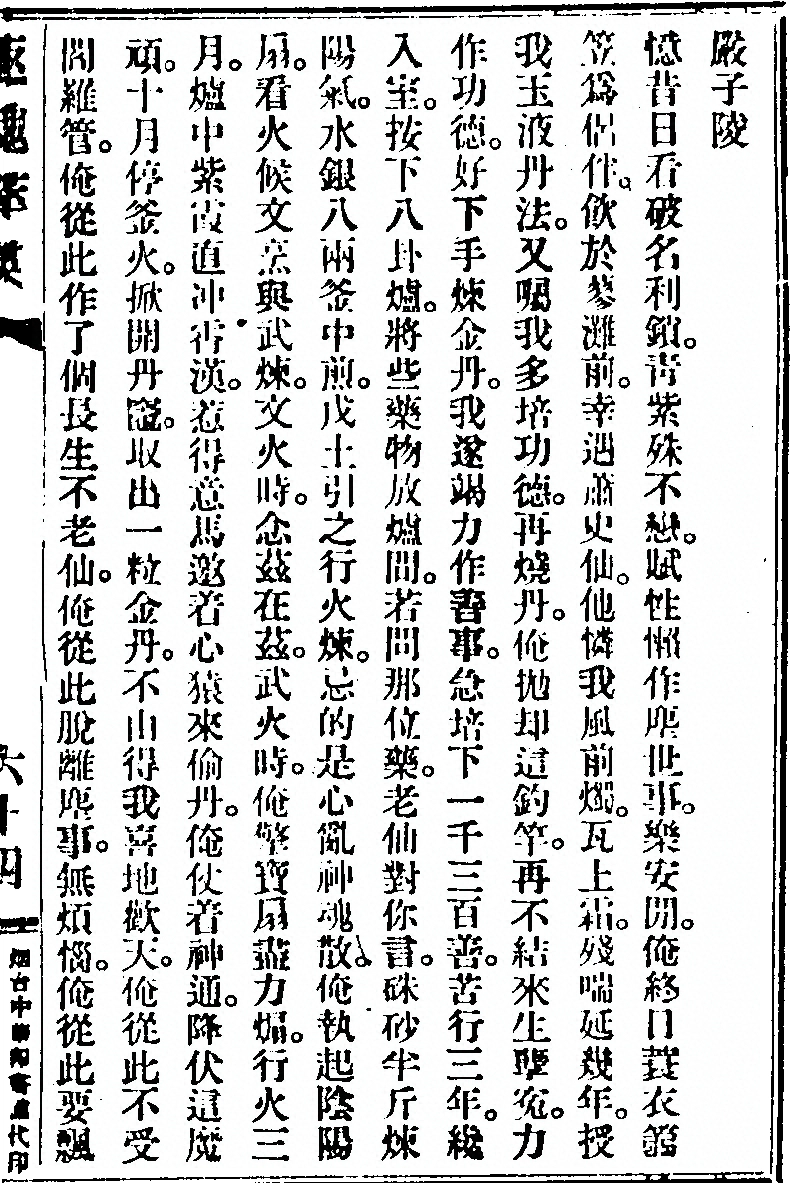 嚴子陵
憶昔日看破名利鎖。靑紫殊不戀。賦性懶作塵世事。樂安閒。俺終日蓑衣篛
笠爲侶伴。飲於蓼灘前。幸遇蕭史仙。他憐我風前燭。瓦上霜。殘喘延幾年。授
我玉液丹法。又囑我多培功德。再燒丹。俺拋却這釣竿。再不結來生孽寃。力
作功德。好下手煉金丹。我遂竭力作善事。急培下一千三百善。苦行三年。纔
入室。按下八卦爐。將些藥物放爐間。若問那位藥。老仙對你言。硃砂半斤煉
陽氣。水銀八兩釜中煎。戊土引之行火煉。忌的是心亂神魂散。俺執起陰陽
扇。看火候文烹與武煉。文火時。念茲在茲。武火時。俺擎寶扇盡力煽。行火三
月。爐中紫霞直冲霄漢。惹得意馬邀着心猿來偷丹。俺仗着神通。降伏這魔
頑。十月停釜火。掀開丹竈。取出一粒金丹。不由得我喜地歡天。俺從此不受
閻羅管。俺從此作了個長生不老仙。俺從此脫離塵事。無煩惱。俺從此要飄
六十四
烟台中華印書局代印